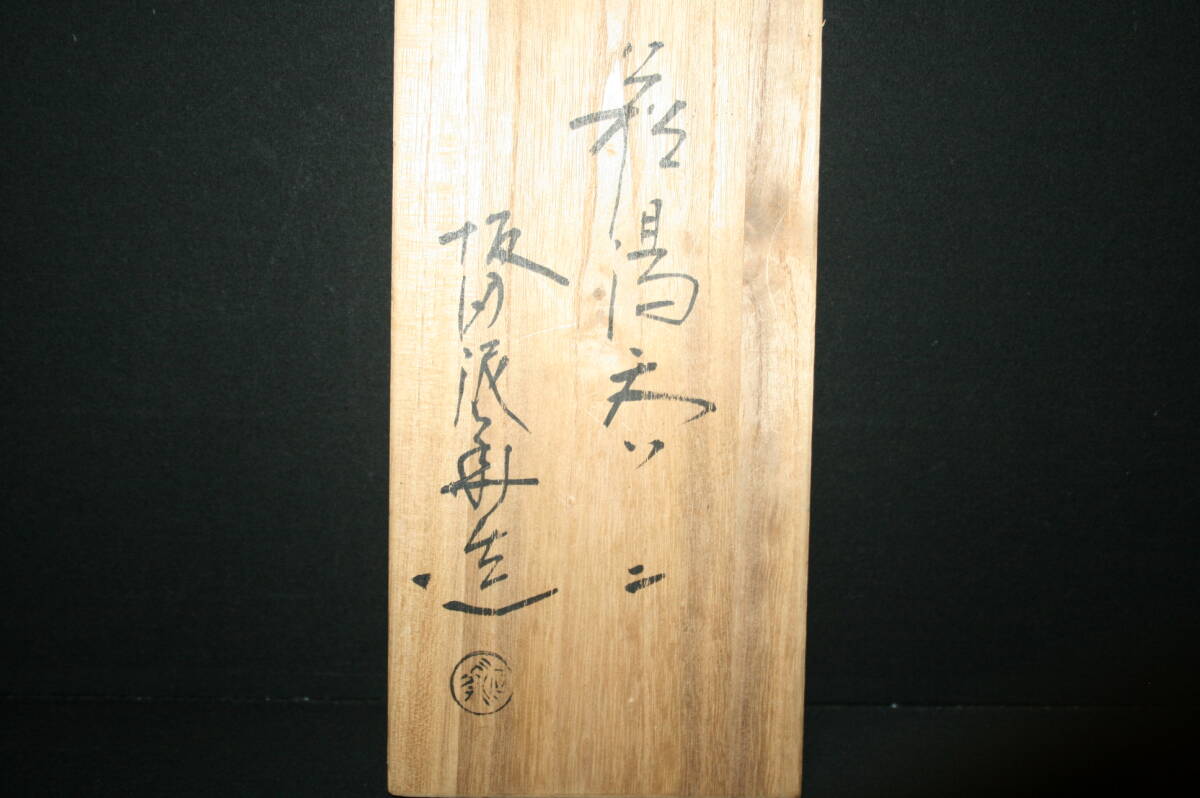 萩湯呑 二
坂田泥華造